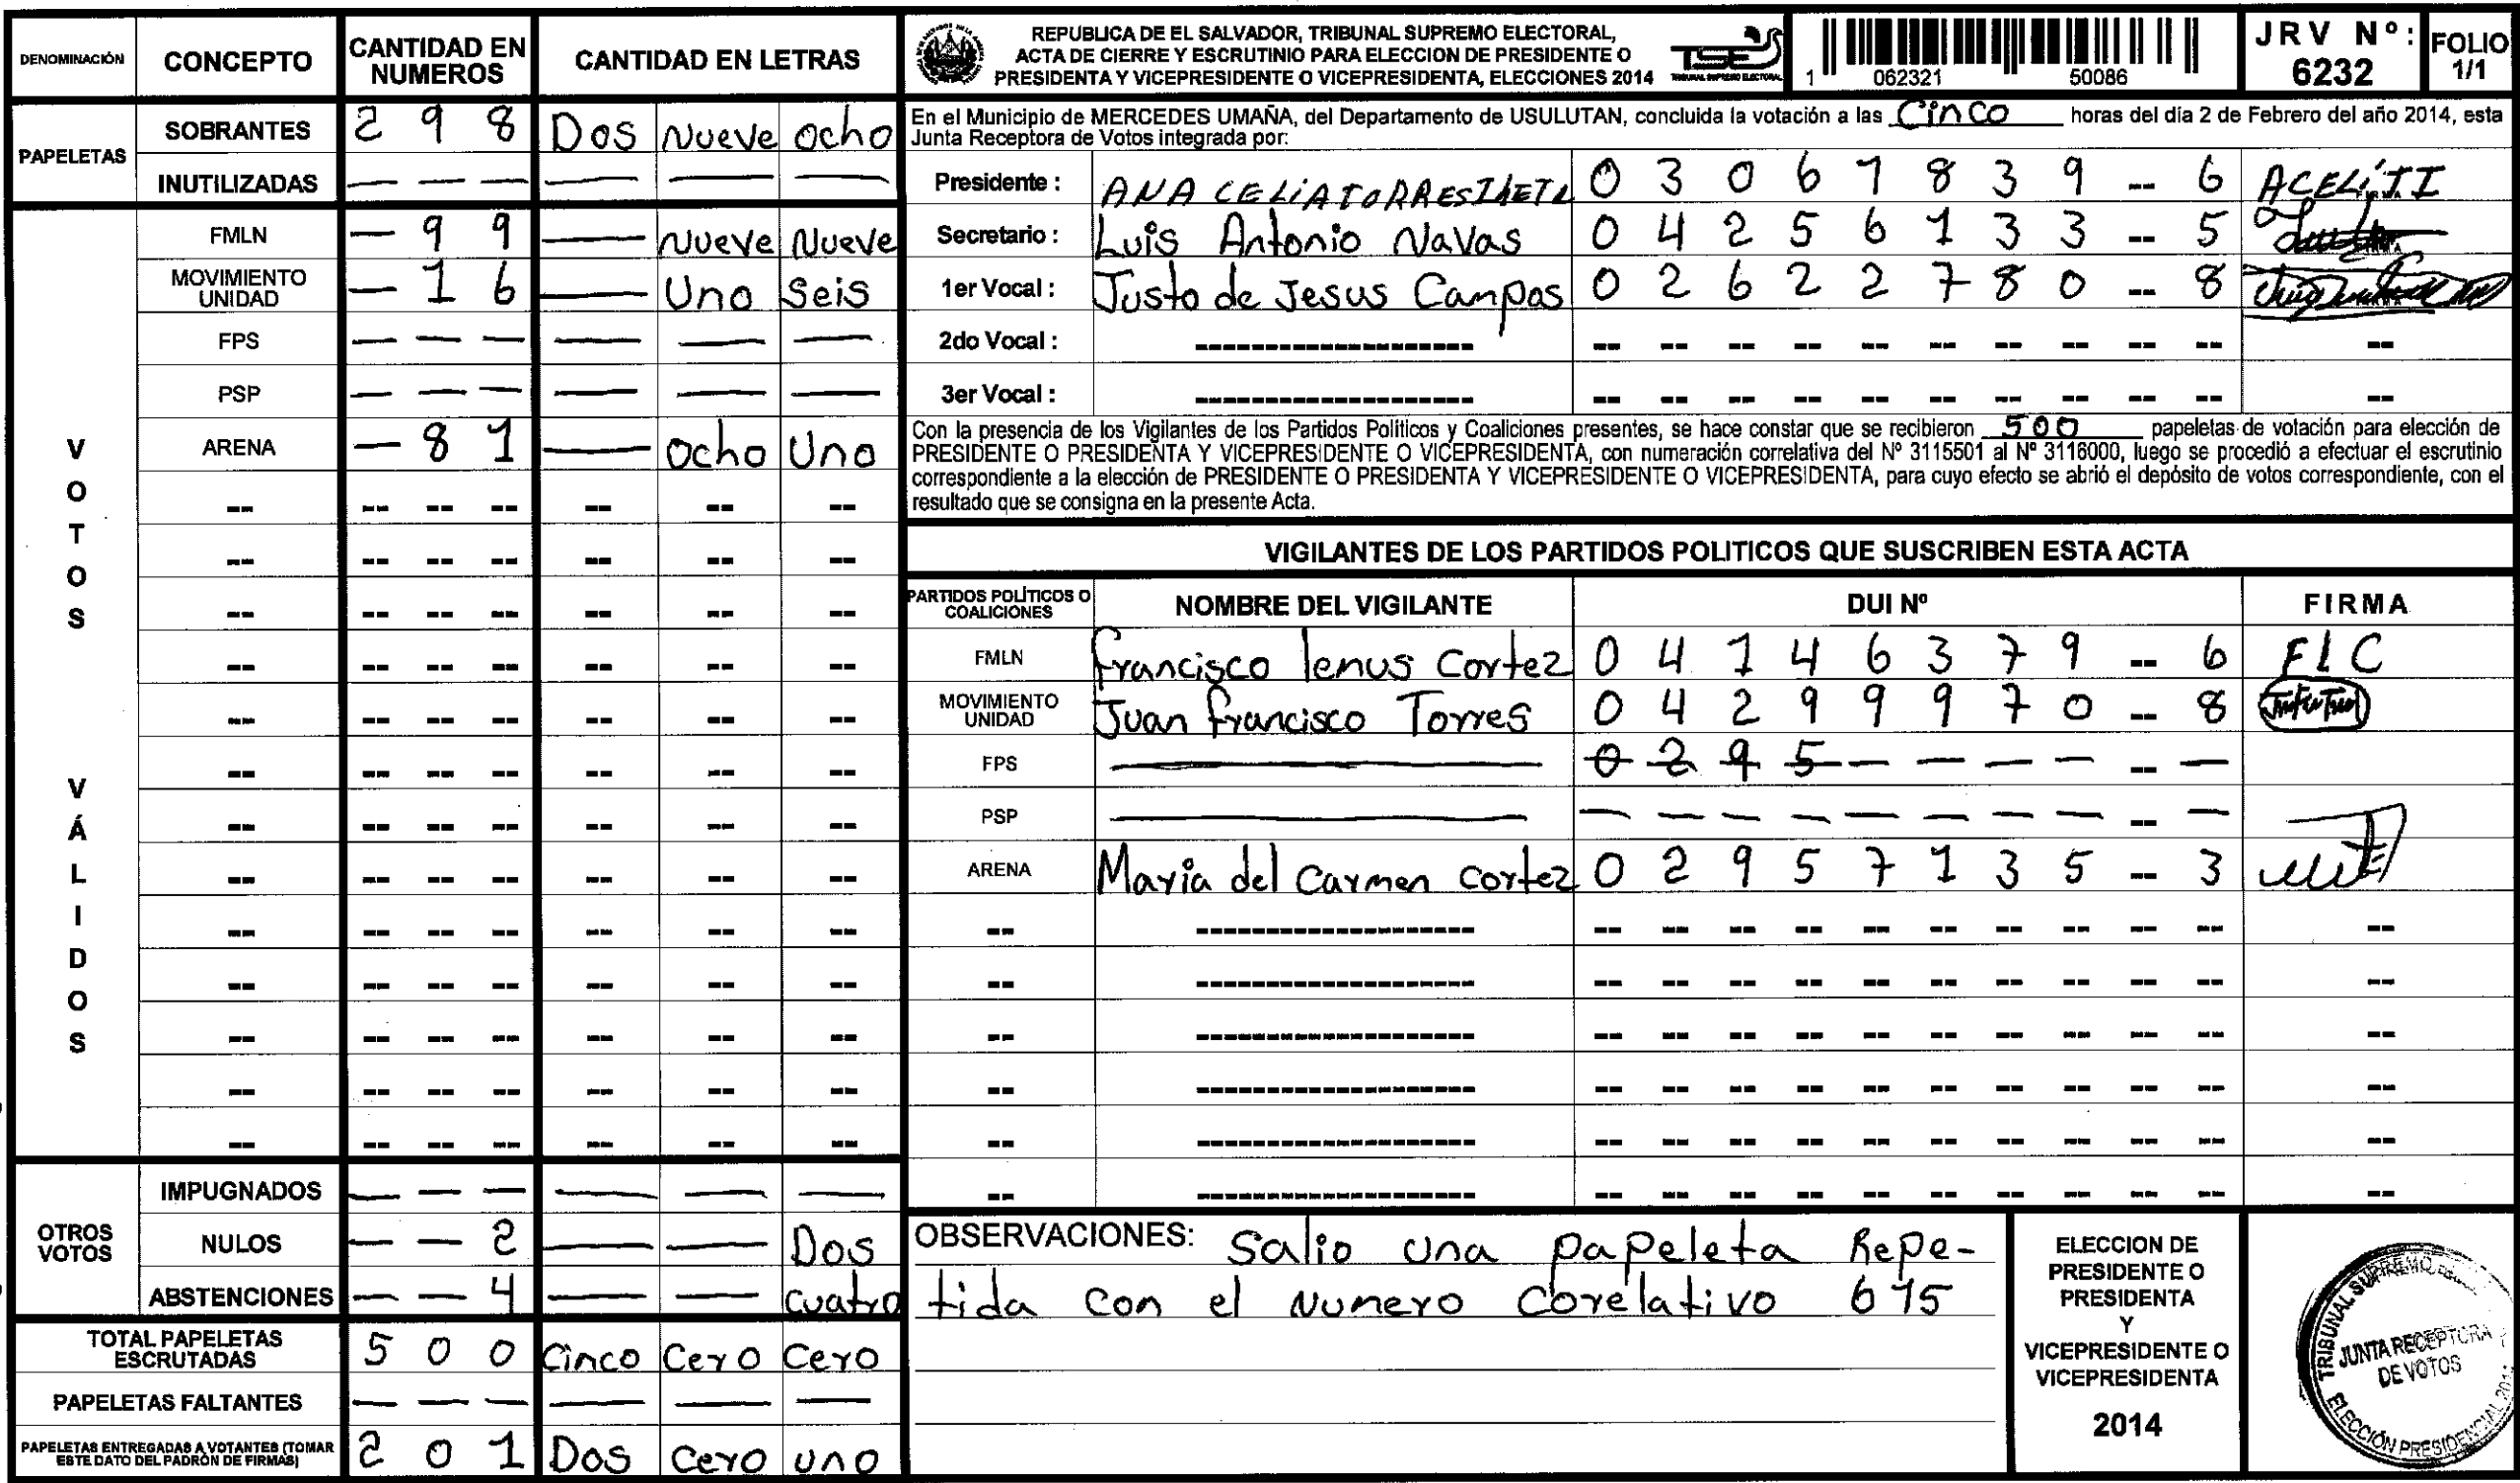 DENOMINACIÓN CONCEPTO CANTIDAD EN NUMEROS CANTIDAD EN LETRAS
PAPELETAS
SOBRANTES 2 9 8 Dos Nueve ocho
INUTILIZADAS — — — — — —
VOTOS VÁLIDOS
FMLN — 9 9 — Nueve Nueve
MOVIMIENTO UNIDAD — 1 6 — Uno Seis
FPS — — — — — —
PSP — — — — — —
ARENA — 8 1 — Ocho Uno
-- -- -- -- -- -- --
-- -- -- -- -- -- --
-- -- -- -- -- -- --
-- -- -- -- -- -- --
-- -- -- -- -- -- --
-- -- -- -- -- -- --
-- -- -- -- -- -- --
-- -- -- -- -- -- --
-- -- -- -- -- -- --
-- -- -- -- -- -- --
-- -- -- -- -- -- --
-- -- -- -- -- -- --
-- -- -- -- -- -- --
OTROS VOTOS
IMPUGNADOS — — — — — —
NULOS — — 2 — — Dos
ABSTENCIONES — — 4 — — cuatro
TOTAL PAPELETAS ESCRUTADAS 5 0 0 Cinco Cero Cero
PAPELETAS FALTANTES — — — — — —
PAPELETAS ENTREGADAS A VOTANTES (TOMAR ESTE DATO DEL PADRÓN DE FIRMAS) 2 0 1 Dos Cero uno
REPUBLICA DE EL SALVADOR, TRIBUNAL SUPREMO ELECTORAL,
ACTA DE CIERRE Y ESCRUTINIO PARA ELECCION DE PRESIDENTE O
PRESIDENTA Y VICEPRESIDENTE O VICEPRESIDENTA, ELECCIONES 2014
TSE
TRIBUNAL SUPREMO ELECTORAL
1 062321 50086
JRV Nº: 6232
FOLIO 1/1
En el Municipio de MERCEDES UMAÑA, del Departamento de USULUTAN, concluida la votación a las Cinco horas del día 2 de Febrero del año 2014, esta
Junta Receptora de Votos integrada por:
Presidente : ANA CELIA TORRES 0 3 0 6 7 8 3 9 -- 6 ACELiTI
Secretario : Luis Antonio Navas 0 4 2 5 6 1 3 3 -- 5
1er Vocal : Justo de Jesus Campos 0 2 6 2 2 7 8 0 -- 8
2do Vocal : -- -- -- -- -- -- -- -- -- -- -- --
3er Vocal : -- -- -- -- -- -- -- -- -- -- -- --
Con la presencia de los Vigilantes de los Partidos Políticos y Coaliciones presentes, se hace constar que se recibieron 500 papeletas de votación para elección de
PRESIDENTE O PRESIDENTA Y VICEPRESIDENTE O VICEPRESIDENTA, con numeración correlativa del Nº 3115501 al Nº 3116000, luego se procedió a efectuar el escrutinio
correspondiente a la elección de PRESIDENTE O PRESIDENTA Y VICEPRESIDENTE O VICEPRESIDENTA, para cuyo efecto se abrió el depósito de votos correspondiente, con el
resultado que se consigna en la presente Acta.
VIGILANTES DE LOS PARTIDOS POLITICOS QUE SUSCRIBEN ESTA ACTA
PARTIDOS POLÍTICOS O COALICIONES NOMBRE DEL VIGILANTE DUI Nº FIRMA
FMLN Francisco lenus Cortez 0 4 1 4 6 3 7 9 -- 6 FLC
MOVIMIENTO UNIDAD Juan francisco Torres 0 4 2 9 9 9 7 0 -- 8
FPS — 0 2 9 5 — — — — -- —
PSP — — — — — — — — — -- —
ARENA Maria del Carmen cortez 0 2 9 5 7 1 3 5 -- 3
-- -- -- -- -- -- -- -- -- -- -- -- --
-- -- -- -- -- -- -- -- -- -- -- -- --
-- -- -- -- -- -- -- -- -- -- -- -- --
-- -- -- -- -- -- -- -- -- -- -- -- --
-- -- -- -- -- -- -- -- -- -- -- -- --
-- -- -- -- -- -- -- -- -- -- -- -- --
OBSERVACIONES: Salio una papeleta Repe-
tida con el Numero Corelativo 675
ELECCION DE
PRESIDENTE O
PRESIDENTA
Y
VICEPRESIDENTE O
VICEPRESIDENTA
2014
TRIBUNAL SUPREMO
JUNTA RECEPTORA
DE VOTOS
ELECCIÓN PRESIDENCIAL 2014